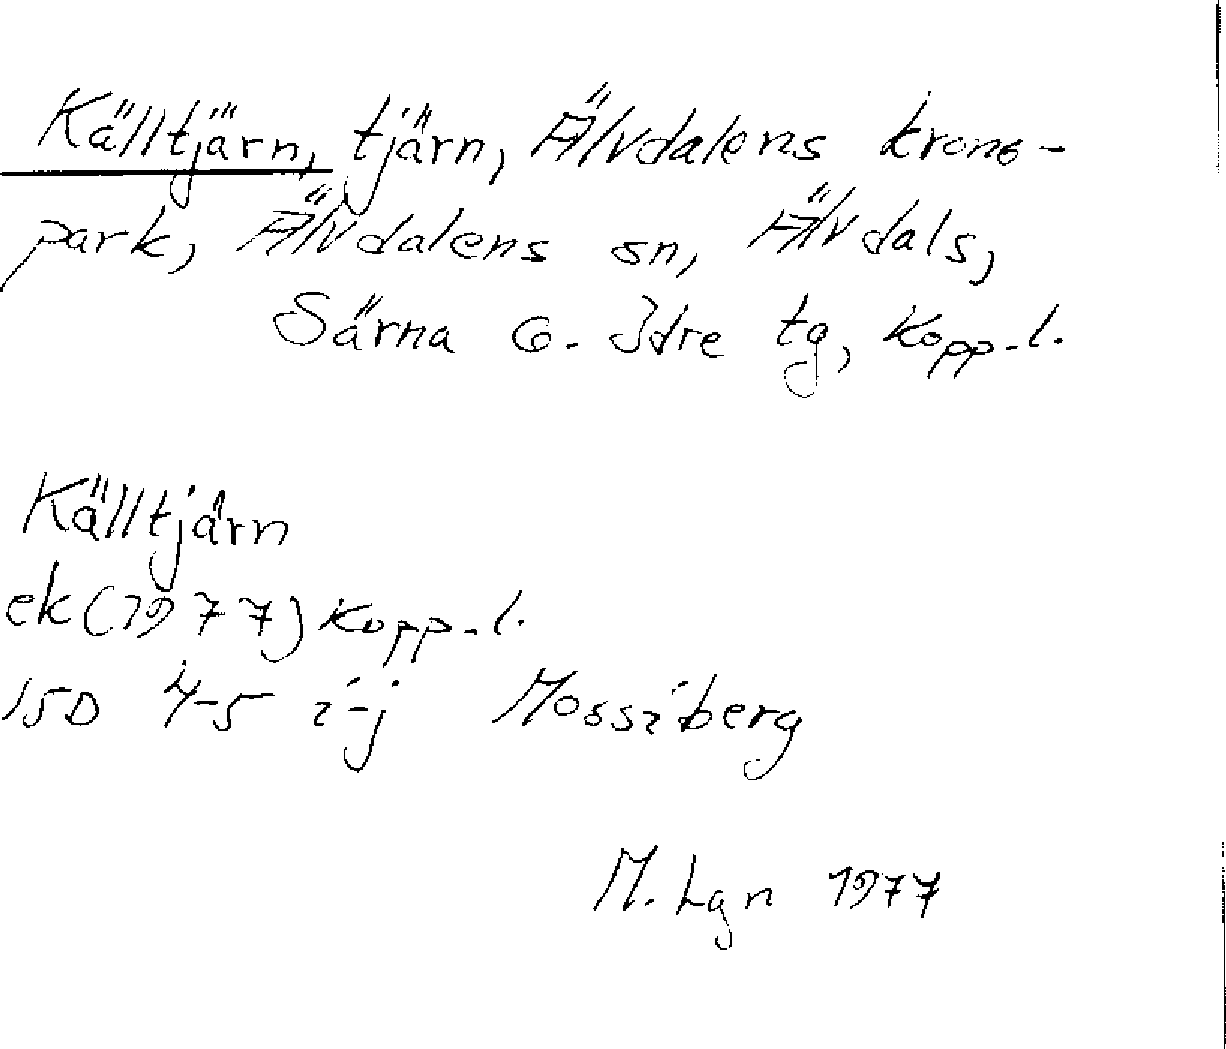 Källtjärn, tjärn, Älvdalens krono-
park, Älvdalens sn, Älvdals,
Särna o. Idre tg, Kopp. l.
Källtjärn
ek (1977) Kopp. l.
15D 4-5 i-j Mossiberg
M. Lgn 1977